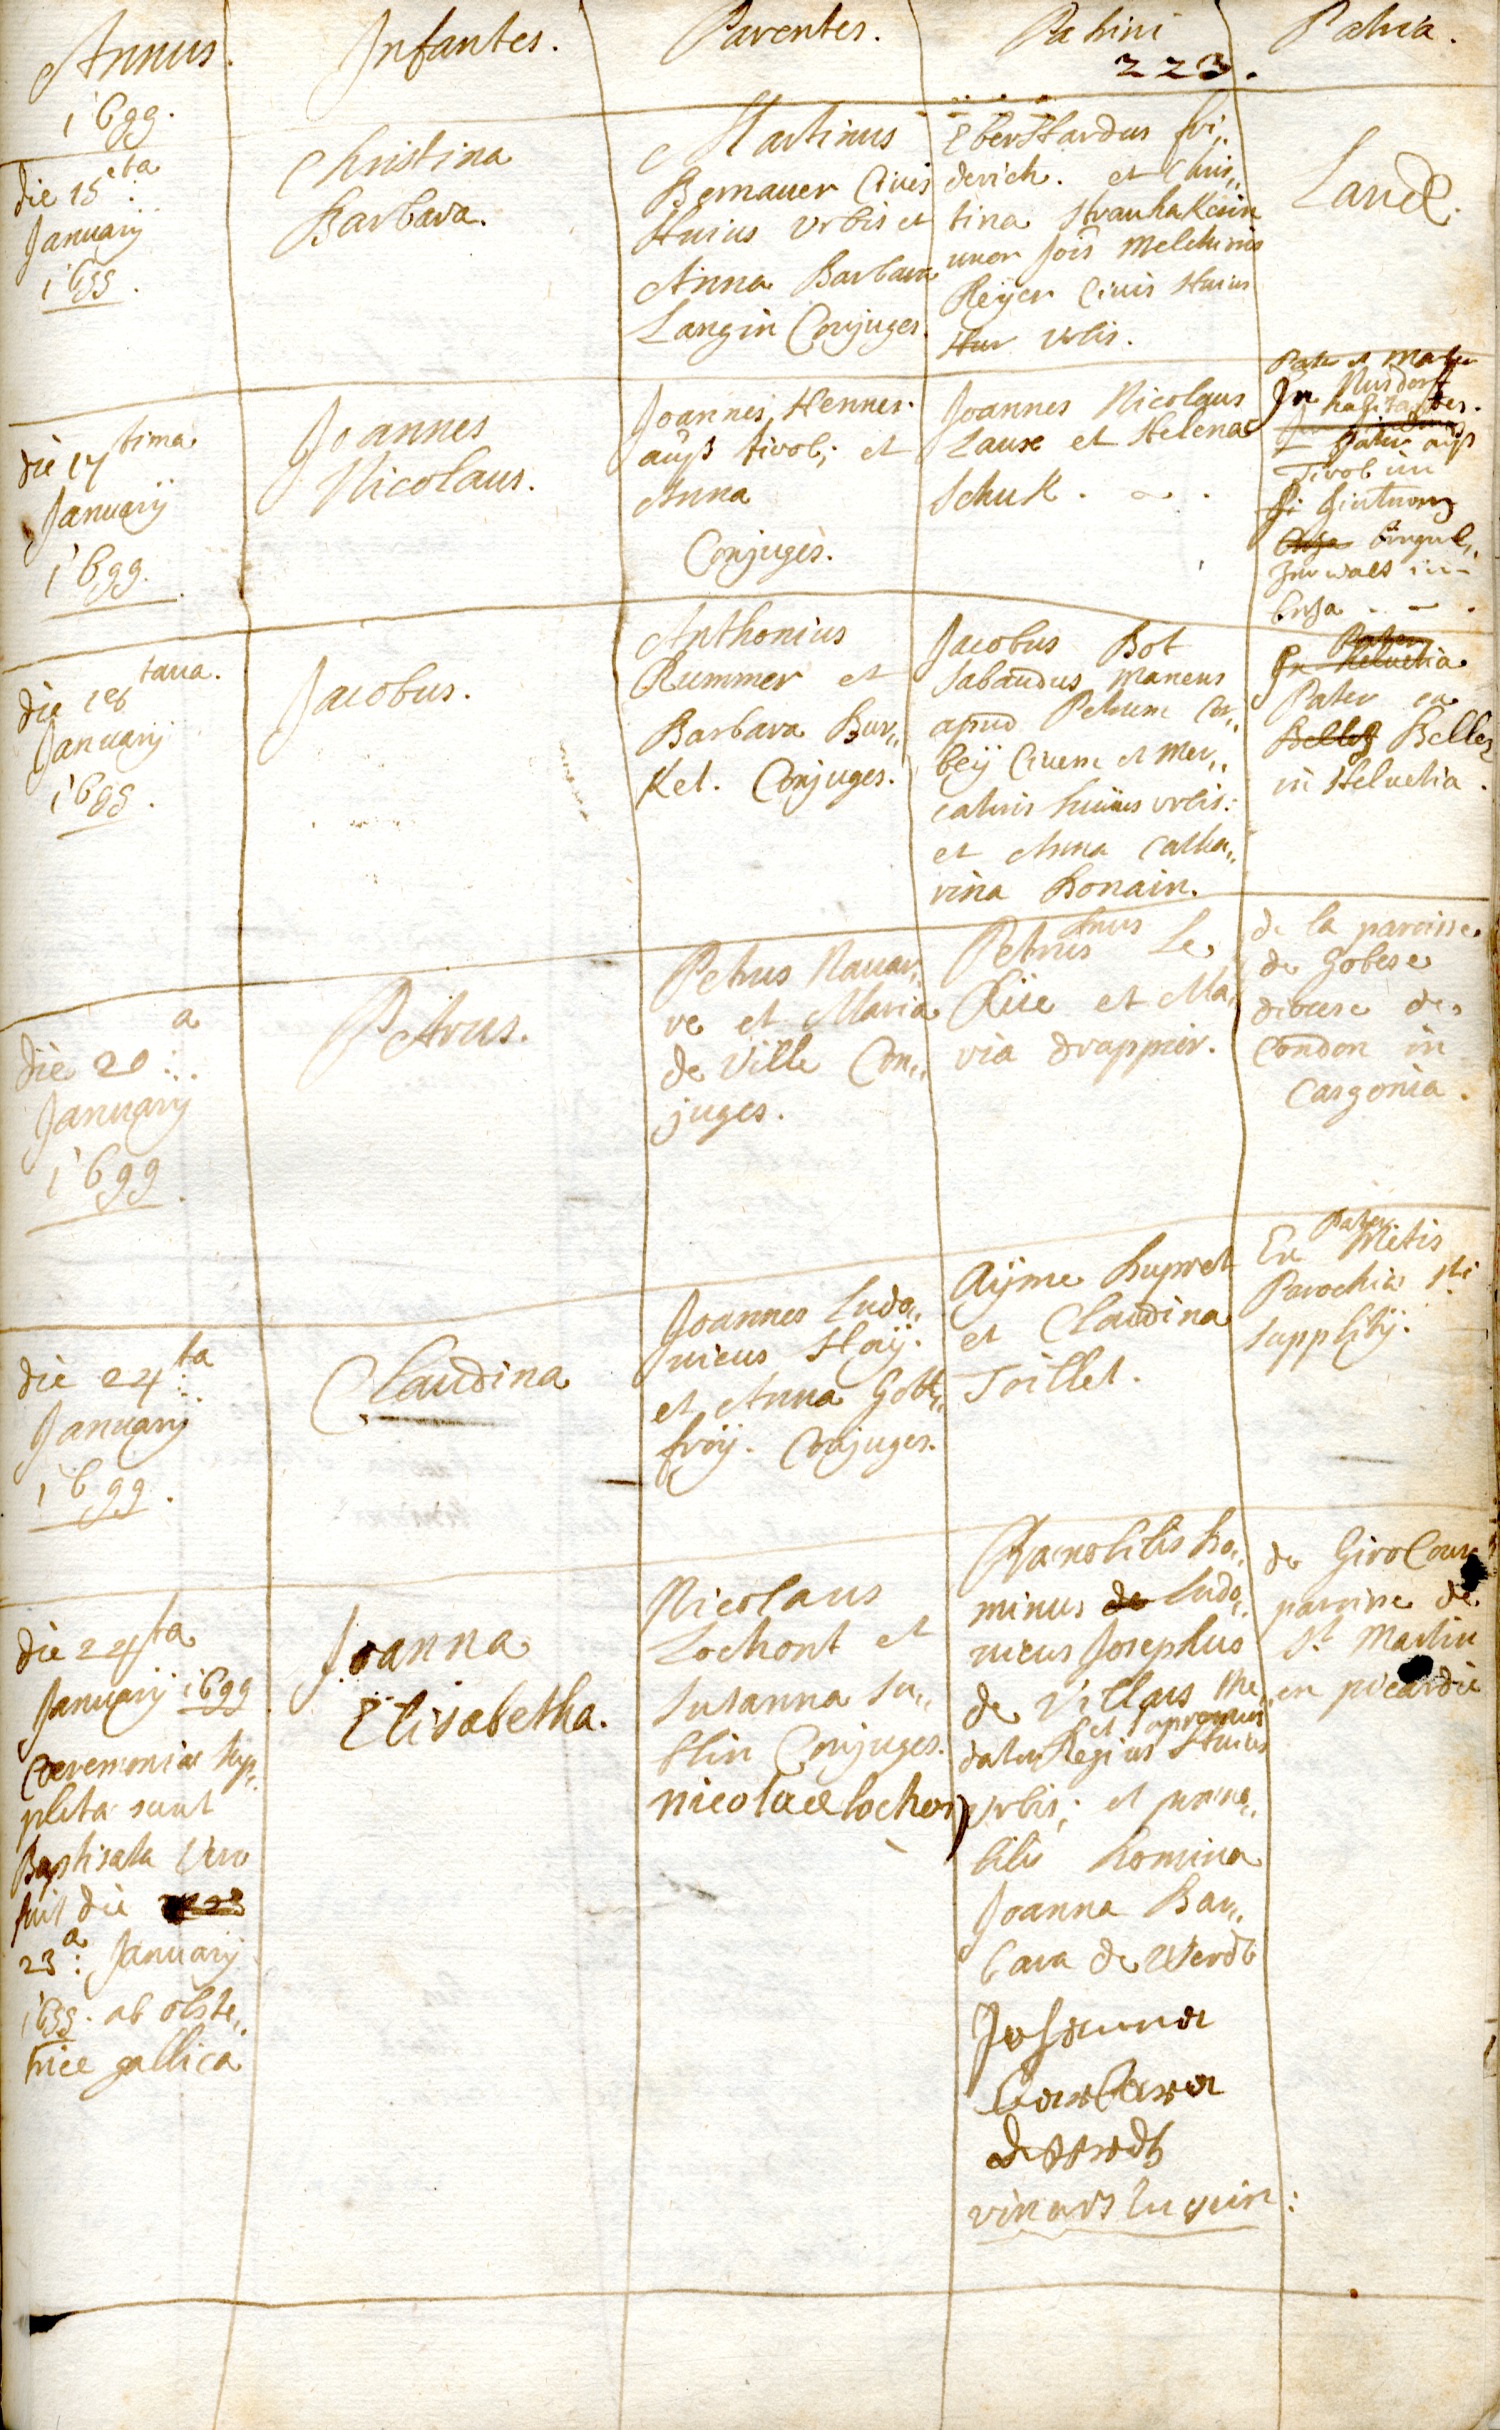 Annus. Infantes. Parentes. Patrini Patria.
223.
1699.
die 15ta
January
1699.
Christina
Barbara.
Martinus
Bernauer Civis
Huius Urbis et
Anna Barbara
Langin Conjuges.
EberHardus fri,,
derich. et Chris,,
tina
uxor Jois Melchioris
Reÿer Civis Huius
Hur Urbis.
Land.
die 17tima
Januarÿ
1699.
Joannes
Nicolaus.
Joannes Henner
auß tirol; et
Anna
Conjuges.
Joannes Nicolaus
Laux et Helena
SchuK.
Pater et Mater
In Nusdorf
habitantes.
Pater auß
Tirol im
die 18tava.
January
1699.
Jacobus.
Anthonius
Rummer et
Barbara Bur,,
Kel. Conjuges.
Jacobus Bot
Sabaudus manens
apud Petrum Cor,,
beÿ Civem et Mer,,
catoris huius urbis:
et Anna Catha,,
rina Bonain.
Pater
Ex Helvetia
Pater ex
Bellez Bellez
in Helvetia.
die 20a
January
1699.
Petrus.
Petrus Navar,,
re et Maria
de Ville Con,,
juges.
Petrus Le
Rüe et Ma,,
ria drappier.
de la paroisse
de Gobese
diocese de
Condon in
Casgonia.
die 24ta
January
1699.
Claudina
Joannes Ludo,,
vicus Haÿ.
et Anna Gott,,
froÿ. Conjuges.
Aÿme Dupret
et Claudina
Toillet.
Pater
Ex Metis
Parochia Sti
Supplitÿ.
die 24ta
Januarÿ 1699
Ceremoniae Sup,,
pleta sunt
Baptisata Vero
fuit die
23a: January
1699. ab obste,,
trice gallica
Joanna
Elisabetha.
Nicolaus
Lochont et
Susanna Su,,
Hlin Conjuges.
nicolae lochon
Praenobilis Do,,
minus de Ludo,,
vicus Josephus
de Villars Me,,
et
dator Regius Huius
Urbis; et praeno,,
bilis Domina
Joanna Bar,,
bara de Werdt
Johanna
Barbara
de
de GiroCour
paroisse de
St Martin
en picardie